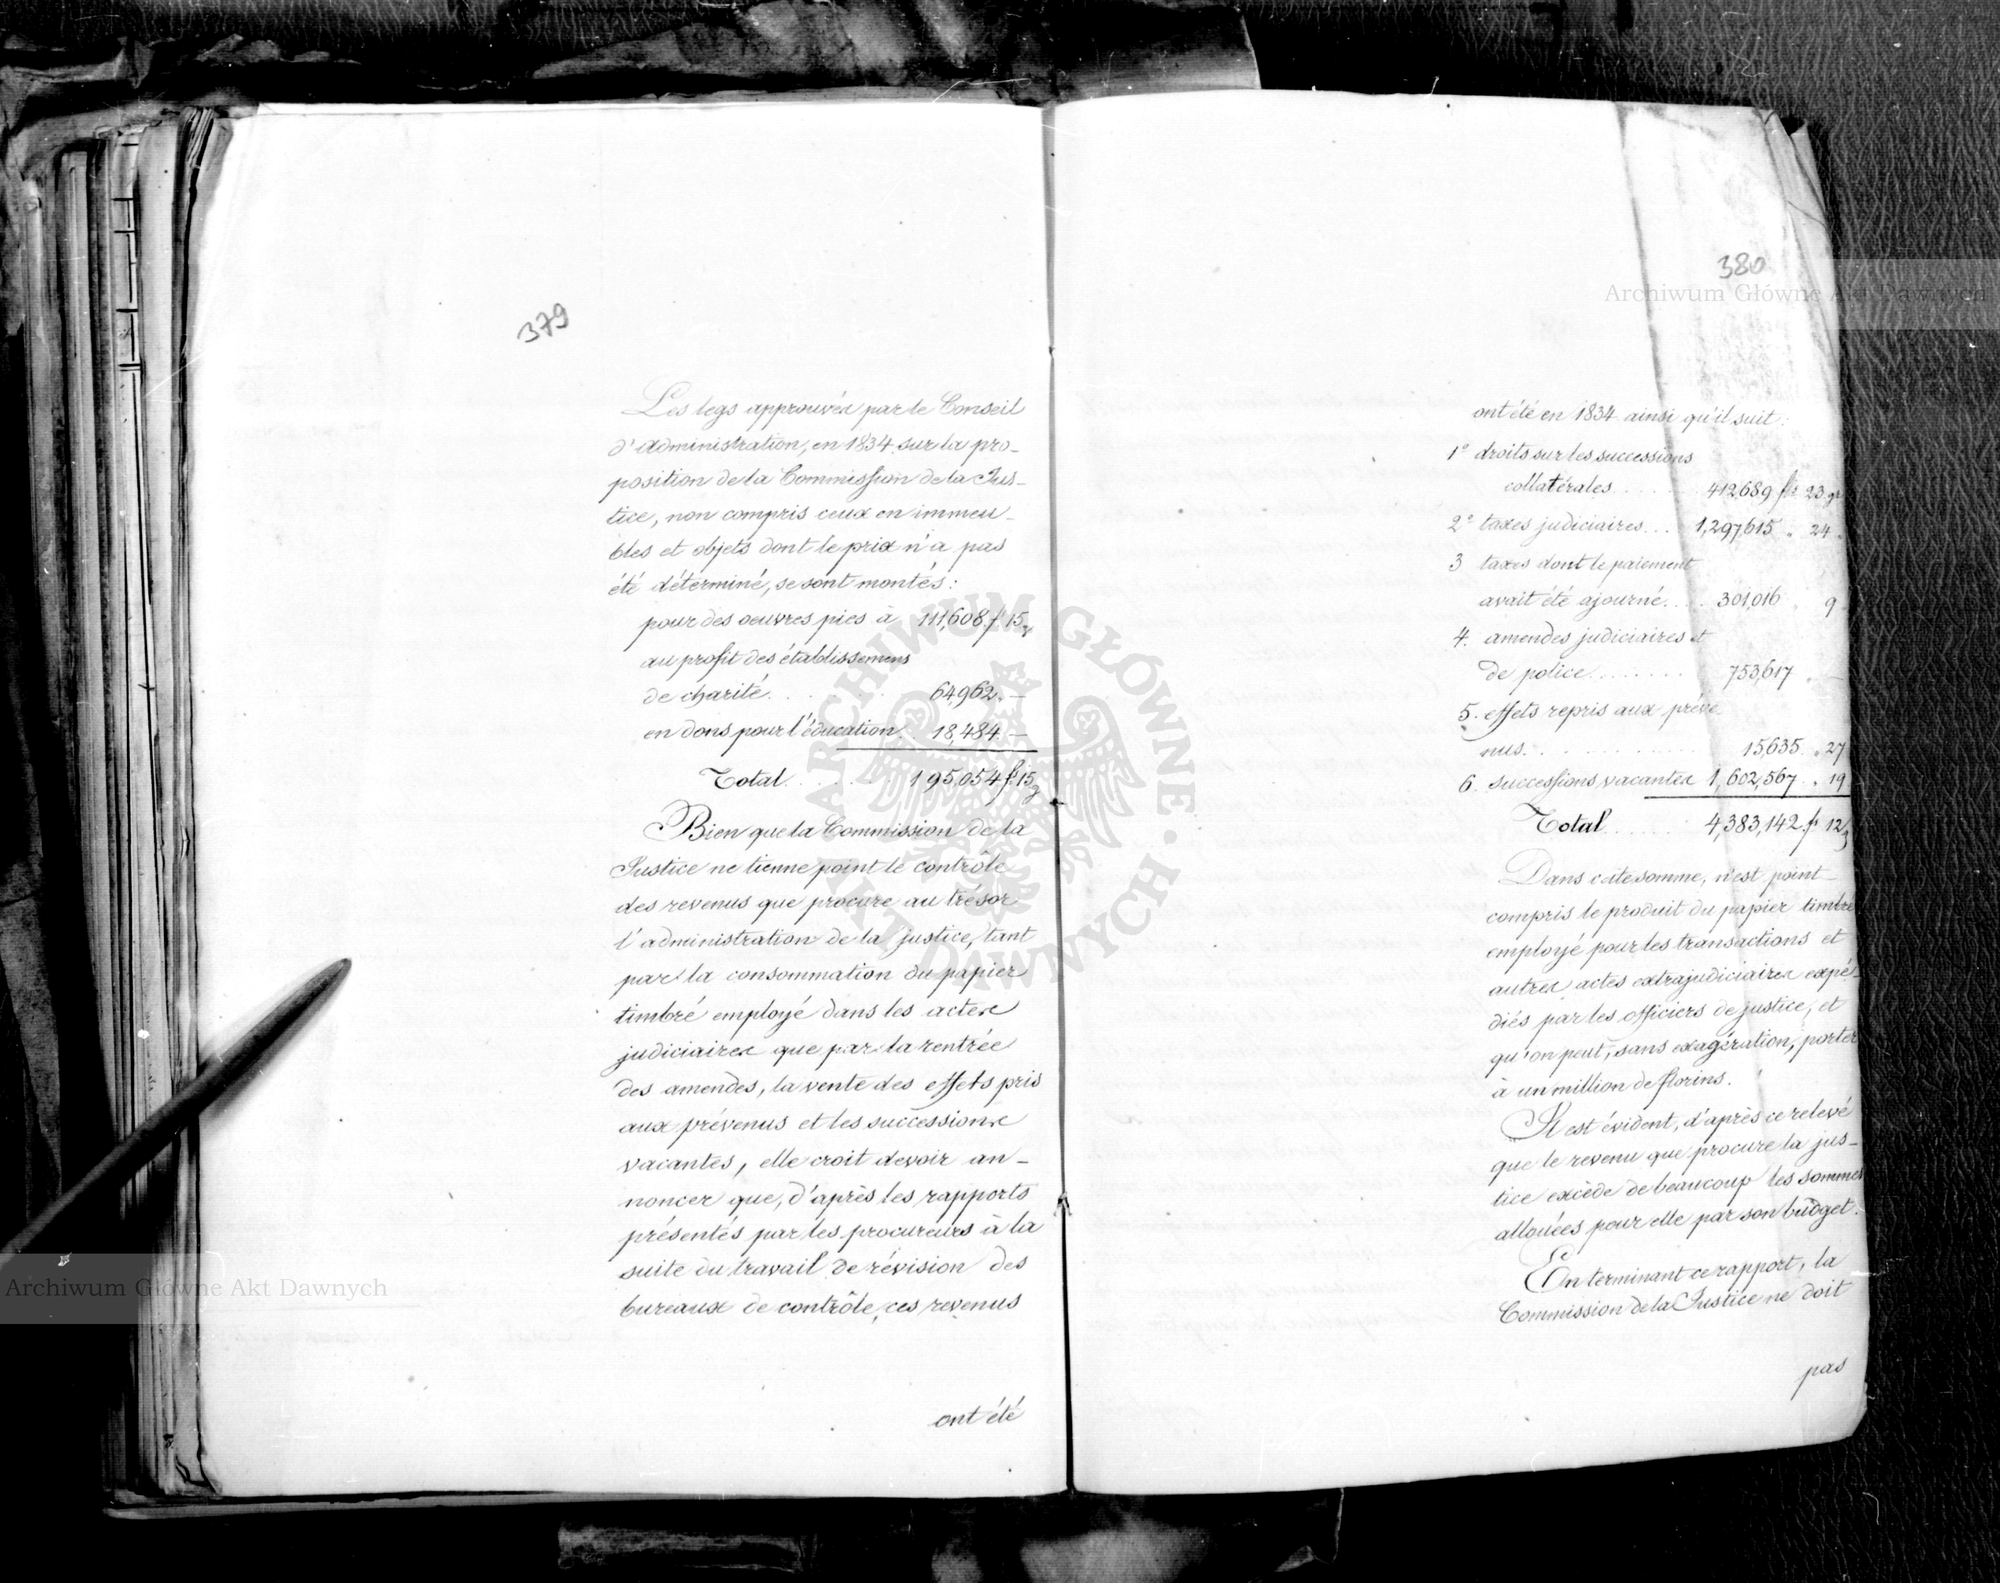 379
Les legs approuvés par le Conseil
d'Administration, en 1834 sur la pro-
position de la Commission de la Jus-
tice, non compris ceux en immeu-
bles et objets dont le prix n'a pas
été déterminé, se sont montés:
pour des oeuvres pies à 111,608 f. 15 g
au profit des établissemens
de charité. . . . . . 64,962. —
en dons pour l'éducation. 18,484. —
Total. . . . . . 195,054 f. 15 g
Bien que la Commission de la
Justice ne tienne point le contrôle
des revenus que procure au trésor
l'administration de la justice, tant
par la consommation du papier
timbré employé dans les actes
judiciaires que par la rentrée
des amendes, la vente des effets pris
aux prévenus et les successions
vacantes, elle croit devoir an-
noncer que, d'après les rapports
présentés par les procureurs à la
suite du travail de révision des
bureaux de contrôle, ces revenus
ont été
380
ont été en 1834 ainsi qu'il suit:
1° droits sur les successions
collatérales. . . . . . 412,689 fl 23 gr
2° taxes judiciaires. . . 1,297,615 " 24 "
3 taxes dont le paiement
avait été ajourné. . . 301,016 " 9
4. amendes judiciaires et
de police. . . . . . . 753,617 " —
5. effets repris aux préve
nus. . . . . . . . . . 15,635. " 27
6. successions vacantes 1,602,567. " 19
Total . . . . . 4,383,142 fl 12 g
Dans cette somme, n'est point
compris le produit du papier timbré
employé pour les transactions et
autres actes extrajudiciaires expé-
diés par les officiers de justice, et
qu'on peut, sans exagération, porter
à un million de florins.
Il est évident, d'après ce relevé
que le revenu que procure la jus-
tice excède de beaucoup les sommes
allouées pour elle par son budget.
En terminant ce rapport, la
Commission de la Justice ne doit
pas
ARCHIWUM GŁÓWNE AKT DAWNYCH
Archiwum Główne Akt Dawnych
Archiwum Główne Akt Dawnych